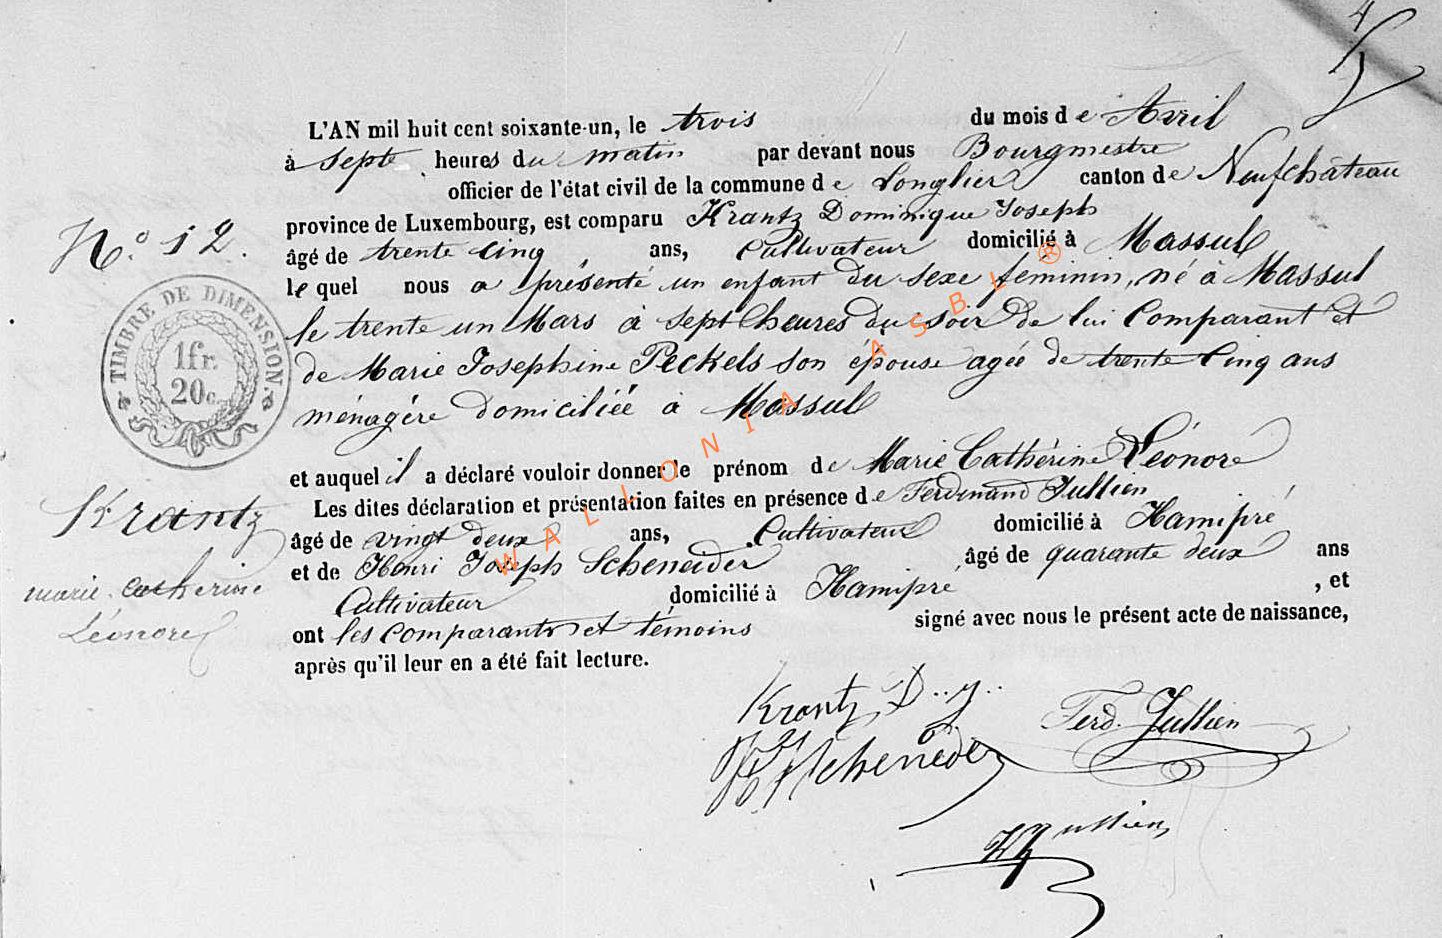 4
L'AN mil huit cent soixante-un, le trois du mois de Avril
à sept heures du matin par devant nous Bourgmestre
officier de l'état civil de la commune de Longlier canton de Neufchâteau
province de Luxembourg, est comparu Krantz Dominique Joseph
N.° 12.
âgé de trente cinq ans, Cultivateur domicilié à Massul
le quel nous a présenté un enfant du sexe féminin, né à Massul
le trente un Mars à sept heures du soir de lui Comparant et
de Marie Josephine Peckels son épouse agée de trente Cinq ans
ménagère domiciliée à Massul
TIMBRE DE DIMENSION.
1 fr.
20 c.
et auquel il a déclaré vouloir donner le prénom de Marie Cathérine Léonore
Les dites déclaration et présentation faites en présence de Ferdinand Jullien
âgé de vingt deux ans, Cultivateur domicilié à Hamipré
et de Henri Joseph Scheneider âgé de quarante deux ans
Cultivateur domicilié à Hamipré , et
ont les comparants et témoins signé avec nous le présent acte de naissance,
après qu'il leur en a été fait lecture.
Krantz
marie catherine
Léonore
Krantz D..j..
Ferd. Jullien
Scheneder
Jullien
WALLONIA ASBL ®